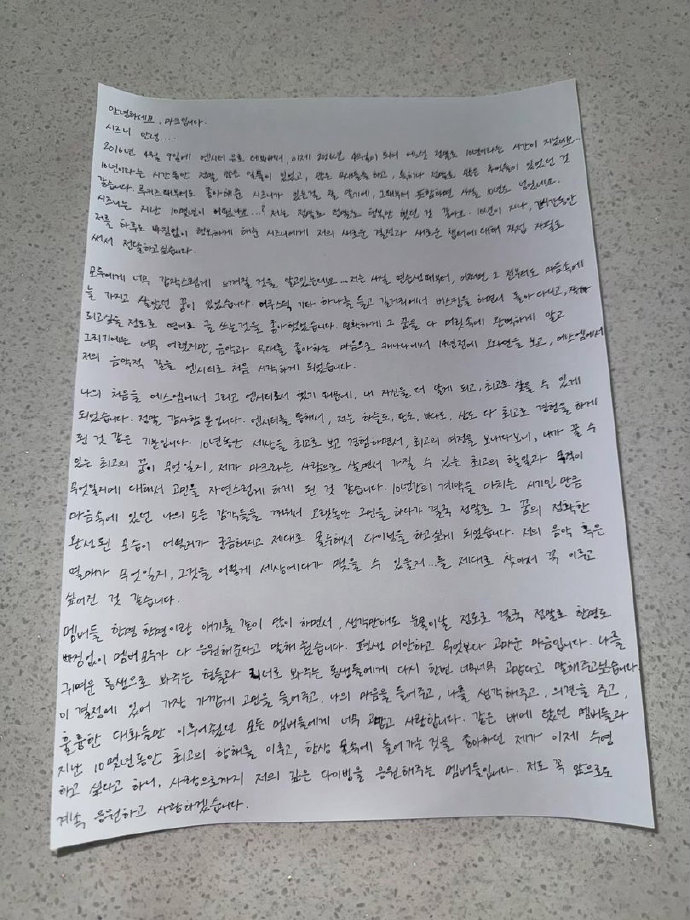 안녕하세요, 마크입니다.
시즈니 안녕....
2016년 4월 9일에 엔시티 유로 데뷔해서, 이제 2026년 4월이 되어 어느덧 정말로 10년이라는 시간이 지났네요...
10년이라는 시간동안 정말, 많은 일들이 있었고, 많은 무대들을 하고, 특히나 정말로 많은 추억들이 있었던 것
같습니다. 루키즈때부터도 좋아해준 시즈니가 있는걸 잘 알기에, 그때부터 포함하면 사실 10년도 넘었네요.
시즈니는 지난 10몇년이 어땠나요...? 저는 정말로 정말로 행복만 했던 것 같아요. 10년이 지나, 긴시간동안
저를 하루도 빠짐없이 행복하게 해준 시즈니에게 저의 새로운 결정과 새로운 챕터에 대해 직접 자필로
써서 전달하고싶습니다.
모두에게 너무 갑작스럽게 느껴질 것을 알고있는데요... 저는 사실 연습생때부터, 어쩌면 그 전부터도 마음속에
늘 가지고 살았던 꿈이 있었습니다. 어쿠스틱 기타 하나를 들고 길거리에서 버스킹을 하면서 돌아다니고, 작가
되고싶을 정도로 영어로 글 쓰는것을 좋아했었습니다. 명확하게 그 꿈을 다 어린속에 완벽하게 알고
그리기에는 너무 어렸지만, 음악과 무대를 좋아하는 마음으로 캐나다에서 14년전에 오디션을 보고, 에스엠에서
저의 음악적 길을 엔시티로 처음 시작하게 되었습니다.
나의 처음을 에스엠에서 그리고 엔시티로서 했기 때문에, 내 자신을 더 알게 되고, 최고로 꿈꿀 수 있게
되었습니다. 정말 감사할 뿐입니다. 엔시티를 통해서, 저는 하늘도, 땅도, 바다도, 산도 다 최고로 경험을 하게
된 것 같은 기분입니다. 10년동안 세상을 최고로 보고 경험하면서, 최고의 여정을 보내다보니, 내가 꿀 수
있는 최고의 꿈이 무엇일지, 제가 마크라는 사람으로 살면서 가질 수 있는 최고의 할일과 목적이
무엇일지에 대해서 고민을 자연스럽게 하게 된 것 같습니다. 10년간의 계약을 마치는 시기인 만큼
마음속에 있던 나의 모든 감각들을 깨워서 오랫동안 고민을 하다가 결국 정말로 그 꿈의 정확한
완성된 모습이 어떨런가 궁금해지고 제대로 몰두해서 다이빙을 하고싶게 되었습니다. 저의 음악 혹은
열매가 무엇일지, 그것을 어떻게 세상에다가 맺을 수 있을지...를 제대로 찾아서 꼭 이루고
싶어진 것 같습니다.
멤버들 한명 한명이랑 얘기를 같이 많이 하면서, 생각만해도 눈물이날 정도로 결국 정말로 한명도
빠짐없이 멤버 모두가 다 응원해준다고 말해 줬습니다. 평생 미안하고 무엇보다 고마운 마음입니다. 나를
귀여운 동생으로 봐주는 형들과 리더로 봐주는 동생들에게 다시 한번 너무너무 고맙다고 말해주고싶습니다
이 결정에 있어 가장 가깝게 고민을 들어주고, 나의 마음을 들어주고, 나를 생각해주고, 의견을 주고,
훌륭한 대화들만 이루어줬던 모든 멤버들에게 너무 고맙고 사랑합니다. 같은 배에 탔던 멤버들과
지난 10몇년동안 최고의 항해를 이루고, 항상 물속에 들어가는 것을 좋아하던 제가 이제 수영
하고 싶다고 하니, 사랑으로까지 저의 깊은 다이빙을 응원해주는 멤버들입니다. 저도 꼭 앞으로도
계속 응원하고 사랑하겠습니다.